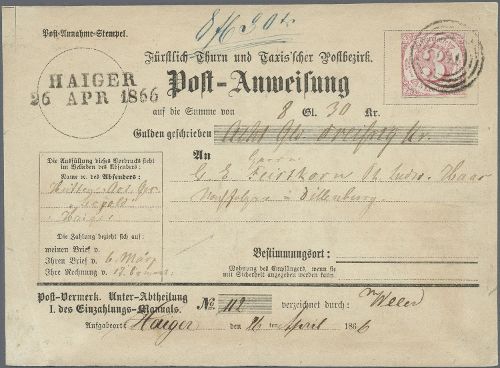 Post-Annahme-Stempel.
Fürstlich Thurn und Taxis'scher Postbezirk.
HAIGER
26 APR 1866
Post-Anweisung
auf die Summe von 8 Gl. 30 Kr.
Gulden geschrieben Acht Gld dreißig Kr.
An
Die Ausfüllung dieses Vordrucks steht
im Belieben des Absenders:
Name u. des Absenders:
Haiger
Dillenburg.
Die Zahlung bezieht sich auf:
meinen Brief v.
Ihren Brief v. 6. März
Ihre Rechnung v.
Bestimmungsort:
Wohnung des Empfängers, wenn sie
mit Sicherheit angegeben werden kann.
Post-Vermerk. Unter-Abtheilung
I. des Einzahlungs-Manuals.
No 112 verzeichnet durch:
Aufgabeort Haiger den 26 ten April 1866